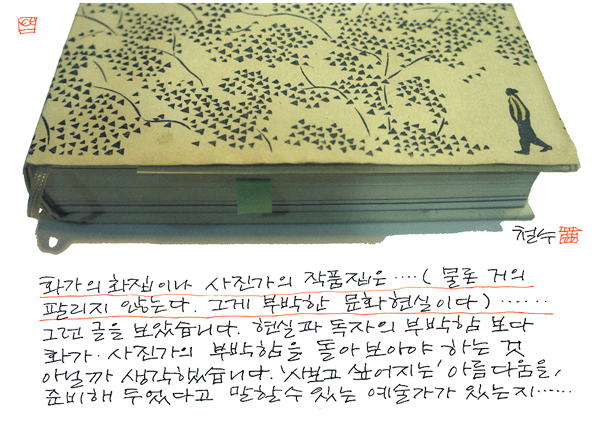 철수
화가의 화집이나 사진가의 작품집은....(물론 거의
팔리지 않는다. 그게 부박한 문화현실이다)......
그런 글을 보았습니다. 현실과 독자의 부박함 보다
화가·사진가의 부박함을 돌아보아야 하는 것
아닐까 생각했습니다. '사보고 싶어지는' 아름다움을,
준비해 두었다고 말할수 있는 예술가가 있는지......